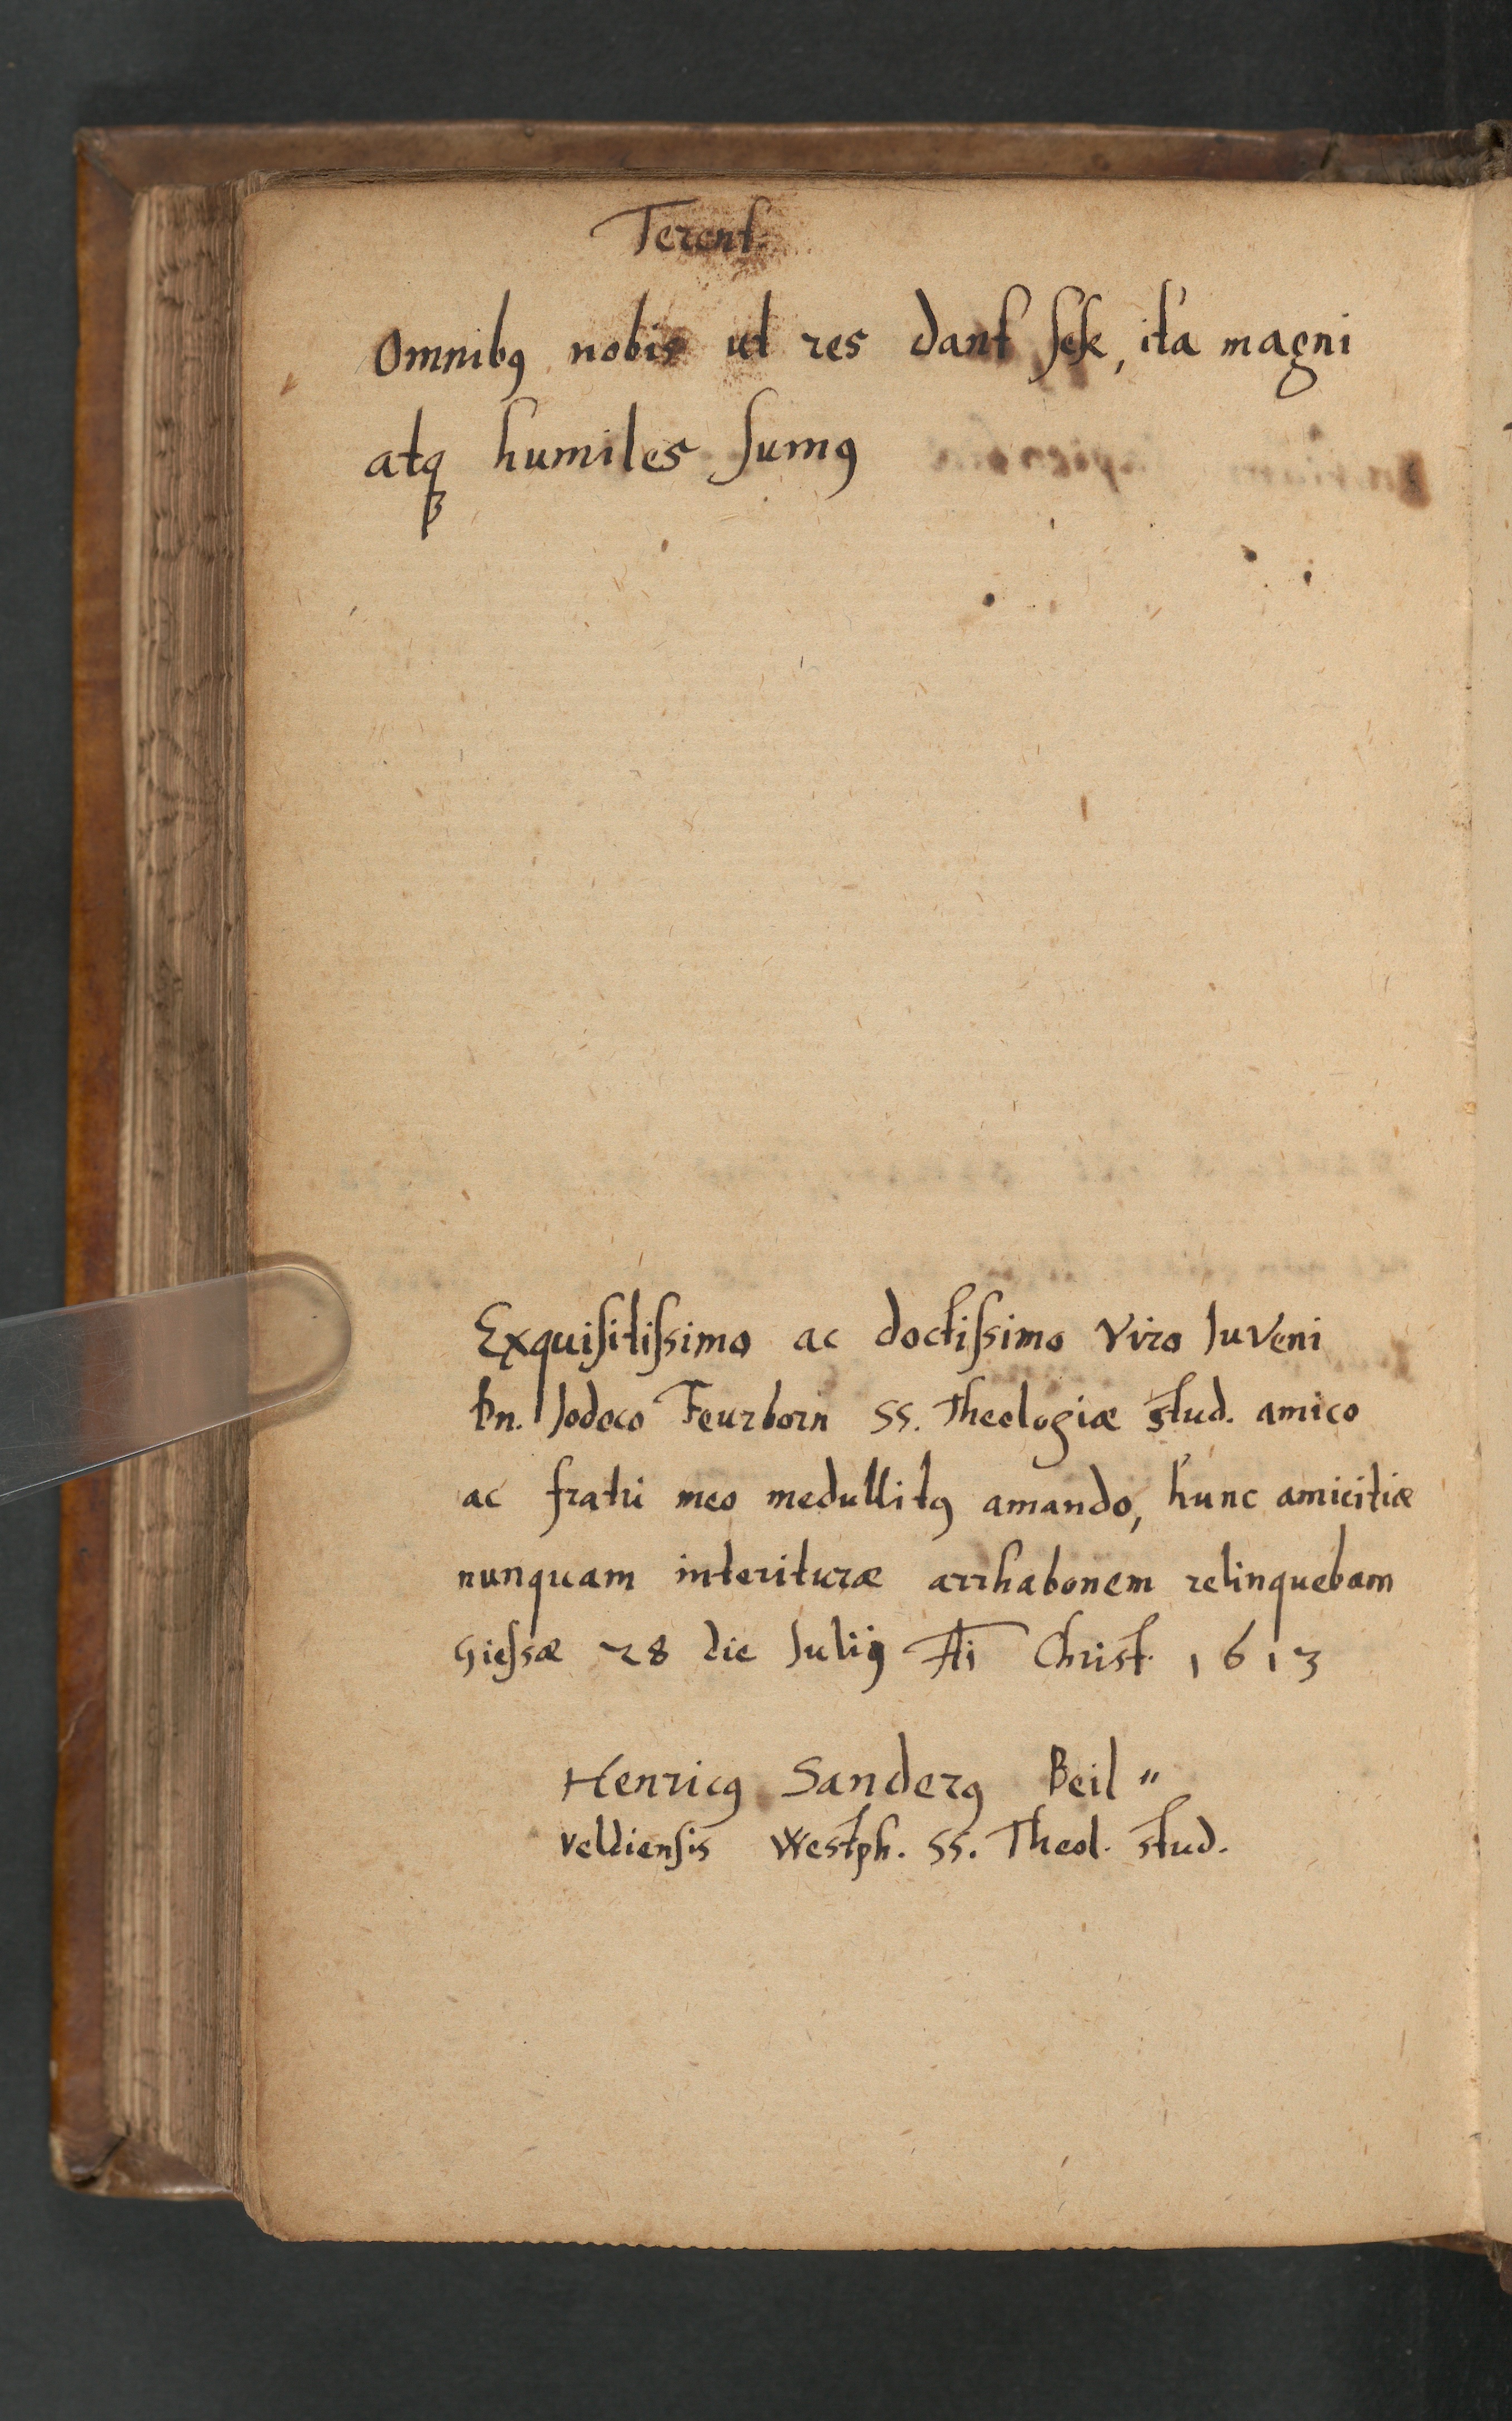 Terent.
Omnibꝯ nobis ut res dant sese, ita magni
atqꝫ humiles sumꝯ
Exquisitissimo ac doctissimo Viro Iuveni
Dn. Iodoco Feurborn SS. Theologiæ stud. amico
ac fratri meo medullitꝯ amando, hunc amicitiæ
nunquam interituræ arrhabonem relinquebam
Giessæ 28 die Iulij Christ. 1613
Henricꝯ Sanderꝯ Beil〃
veldiensis Westph. SS. Theol. stud.